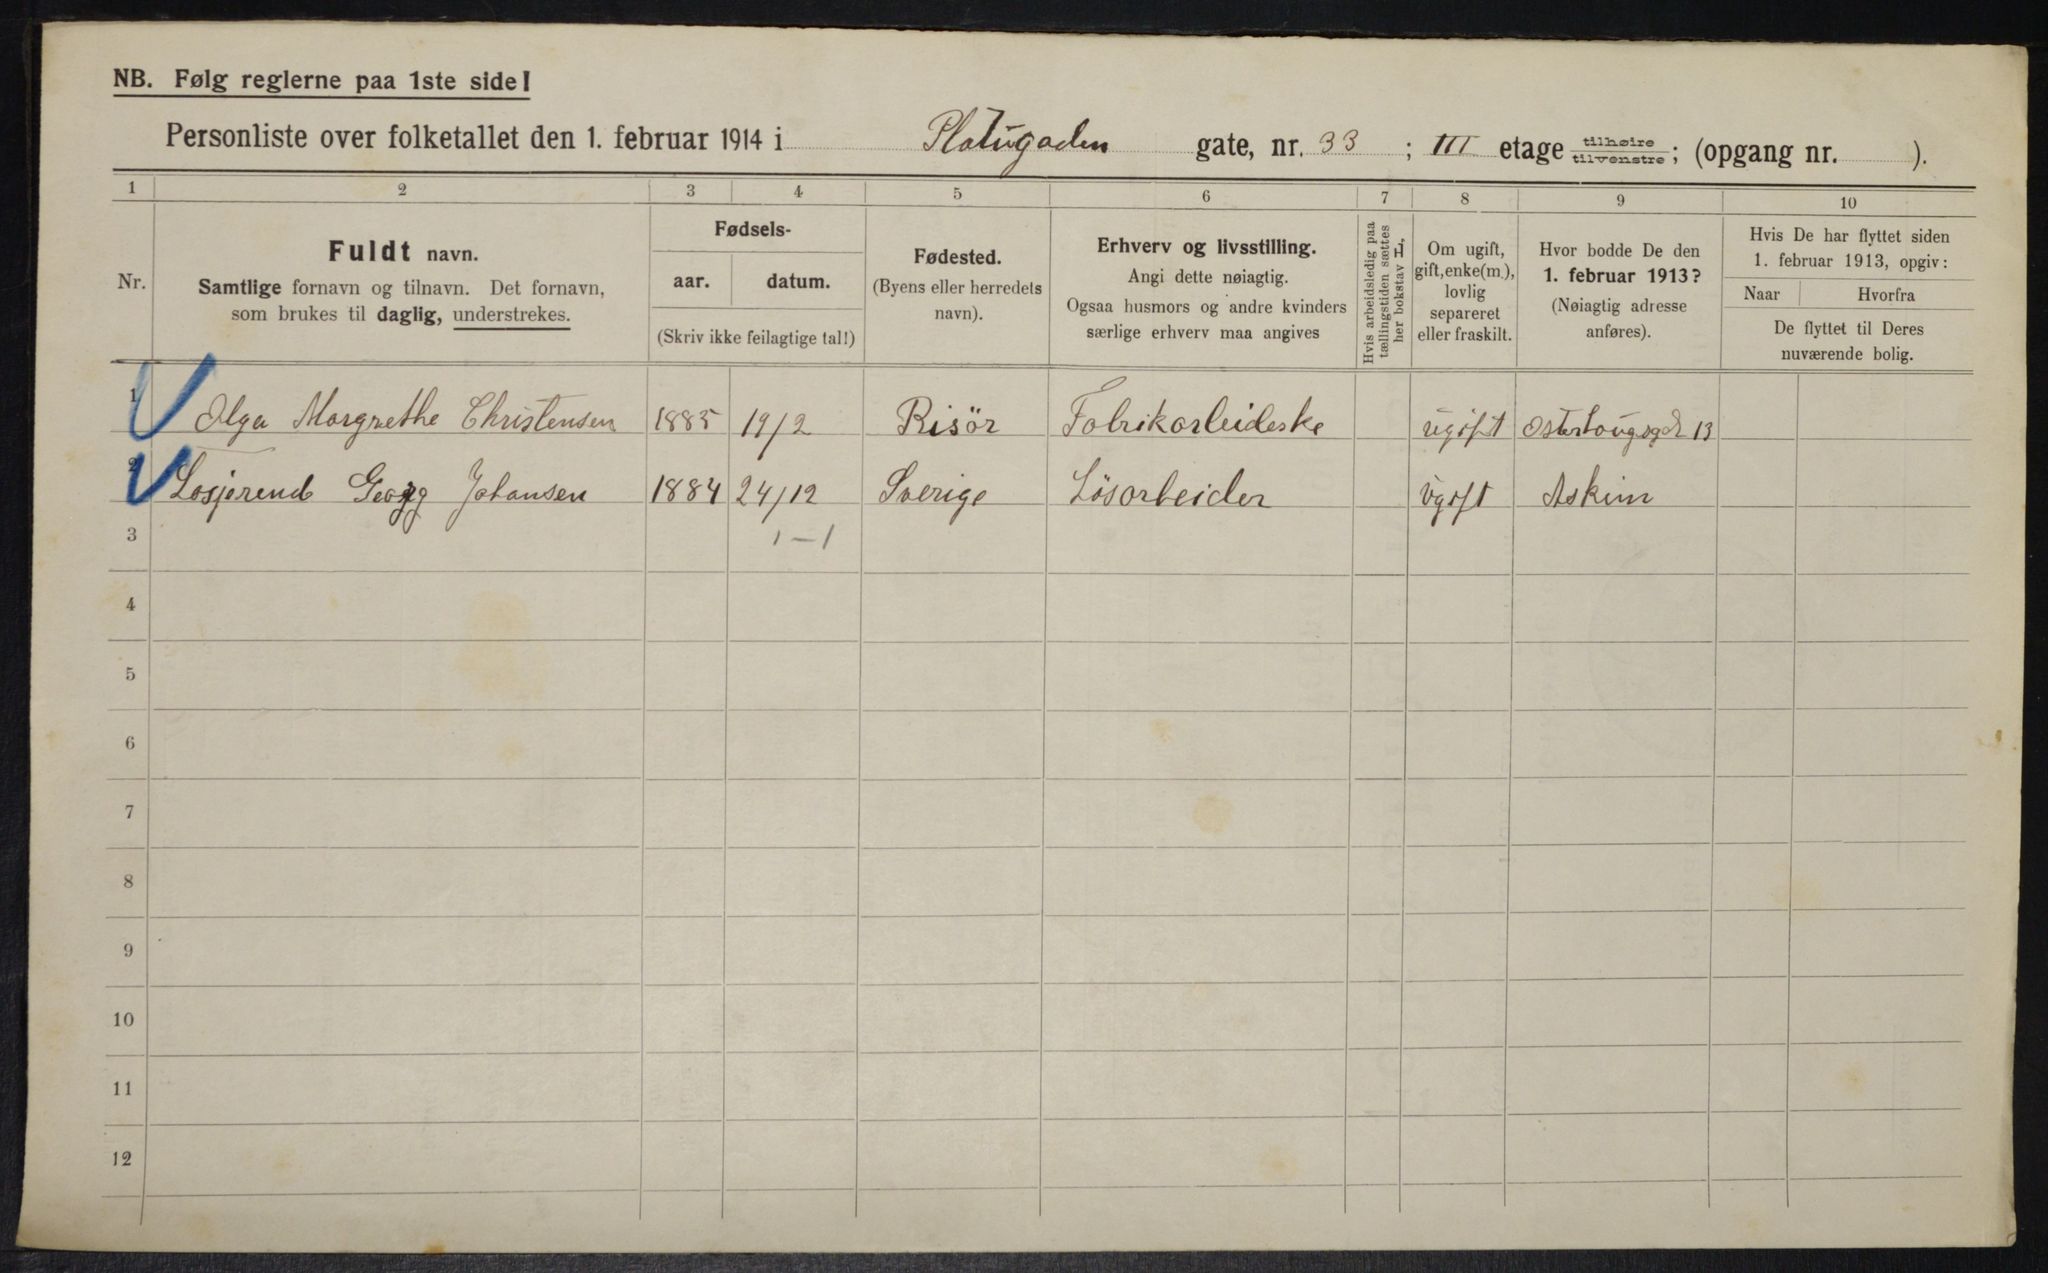 NB. Følg reglerne paa 1ste side!
Personliste over folketallet den 1. februar 1914 i Platugaden gate, nr. 33 ; III etage tilhøire tilvenstre; (opgang nr. ).
1 2 3 4 5 6 7 8 9 10
Nr.
Fuldt navn.
Samtlige fornavn og tilnavn. Det fornavn,
som brukes til daglig, understrekes.
Fødsels-
aar. datum.
(Skriv ikke feilagtige tal!)
Fødested.
(Byens eller herredets
navn).
Erhverv og livsstilling.
Angi dette nøiagtig.
Ogsaa husmors og andre kvinders
særlige erhverv maa angives
Hvis arbeidsledig paa
tællingstiden sættes
her bokstav L.
Om ugift,
gift, enke(m.),
lovlig
separeret
eller fraskilt.
Hvor bodde De den
1. februar 1913?
(Nøiagtig adresse
anføres).
Hvis De har flyttet siden
1. februar 1913, opgiv:
Naar Hvorfra
De flyttet til Deres
nuværende bolig.
1 Olga Margrethe Christensen 1885 19/2 Risör Fabrikarbeideske ugift 13
2 Losjerend Georg Johansen 1884 24/12 Sverige Lösarbeider Ugift Askim
3 1-1
4
5
6
7
8
9
10
11
12